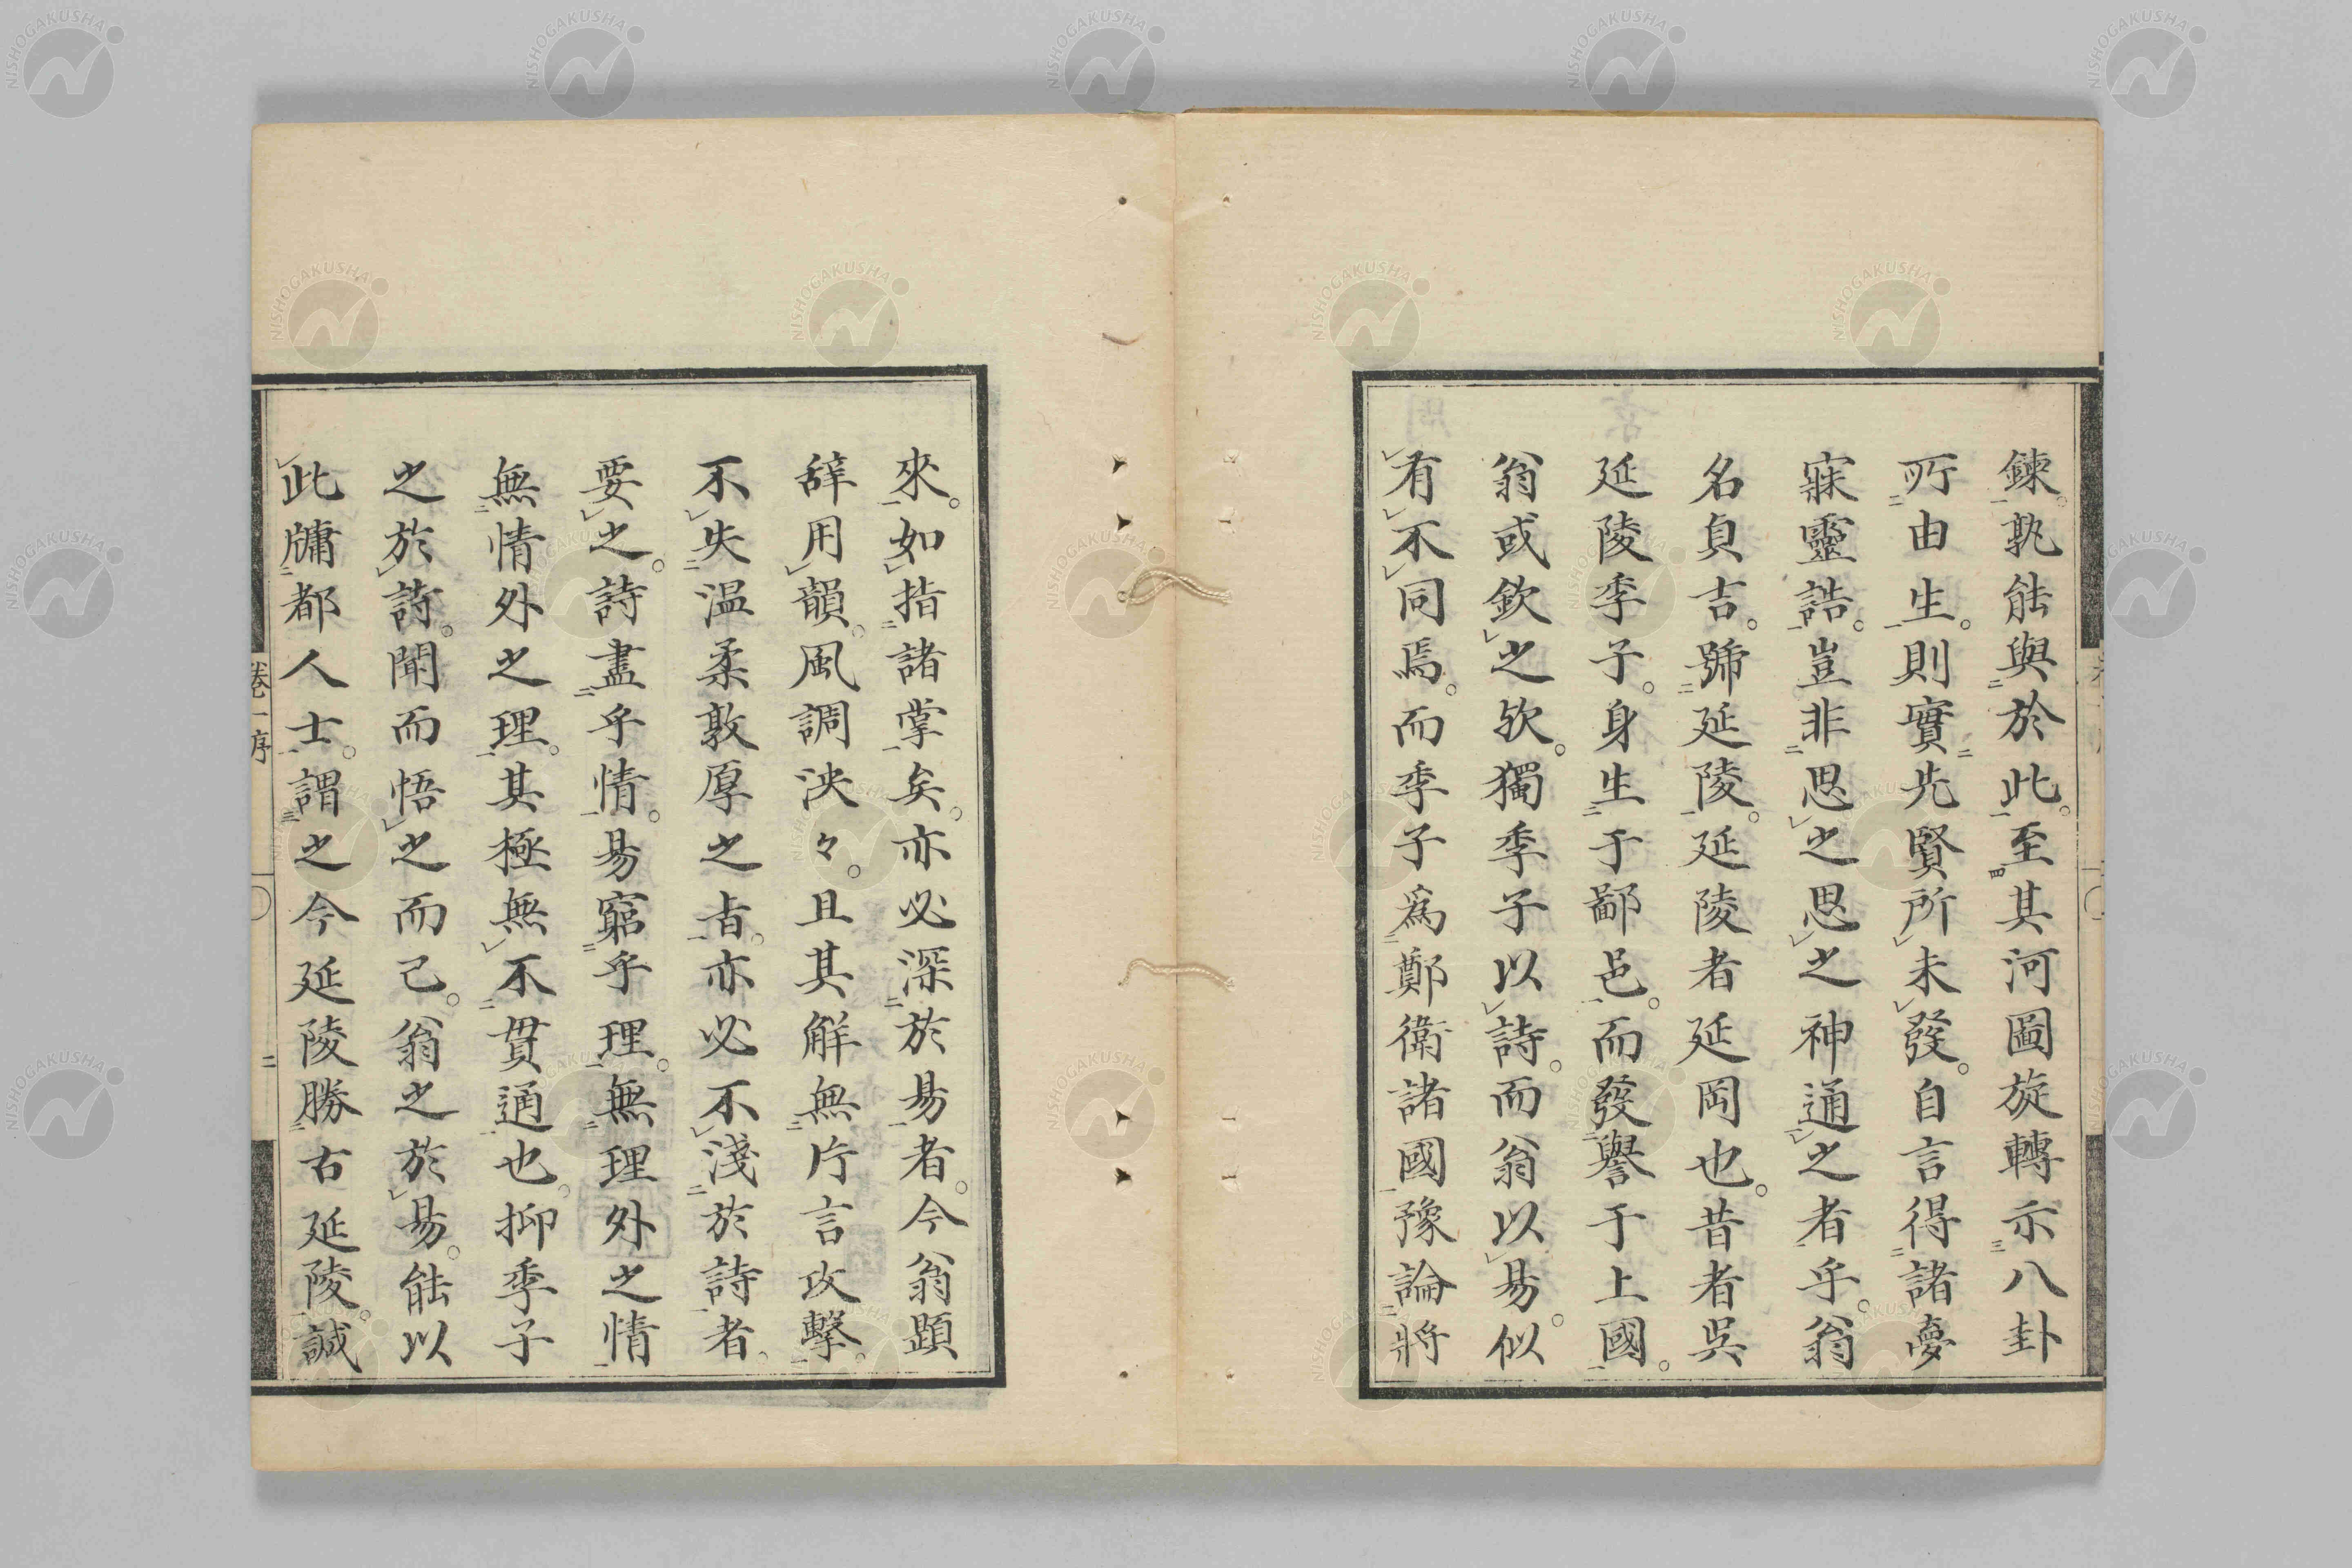 錬。孰能與於此。至其河圖旋轉示八卦
所由生。則實先賢所未發。自言得諸夢
寐靈誥。豈非思之思之神通之者乎。翁
名貞吉。號延陵。延陵者延岡也。昔者吳
延陵季子。身生于鄙邑。而發譽于上國。
翁或欽之欤。獨季子以詩。而翁以易。似
有不同焉。而季子爲鄭衛諸國豫論將
來。如指諸掌矣。亦必深於易者。今翁題
辭用韻。風調泱々。且其解無片言攻擊。
不失温柔敦厚之旨。亦必不淺於詩者。
要之。詩盡乎情。易窮乎理。無理外之情
無情外之理。其極無不貫通也。抑季子
之於詩。聞而悟之而已。翁之於易。能以
此牖都人士。謂之今延陵勝古延陵。誠
卷一序
二
NISHOGAKUSHA